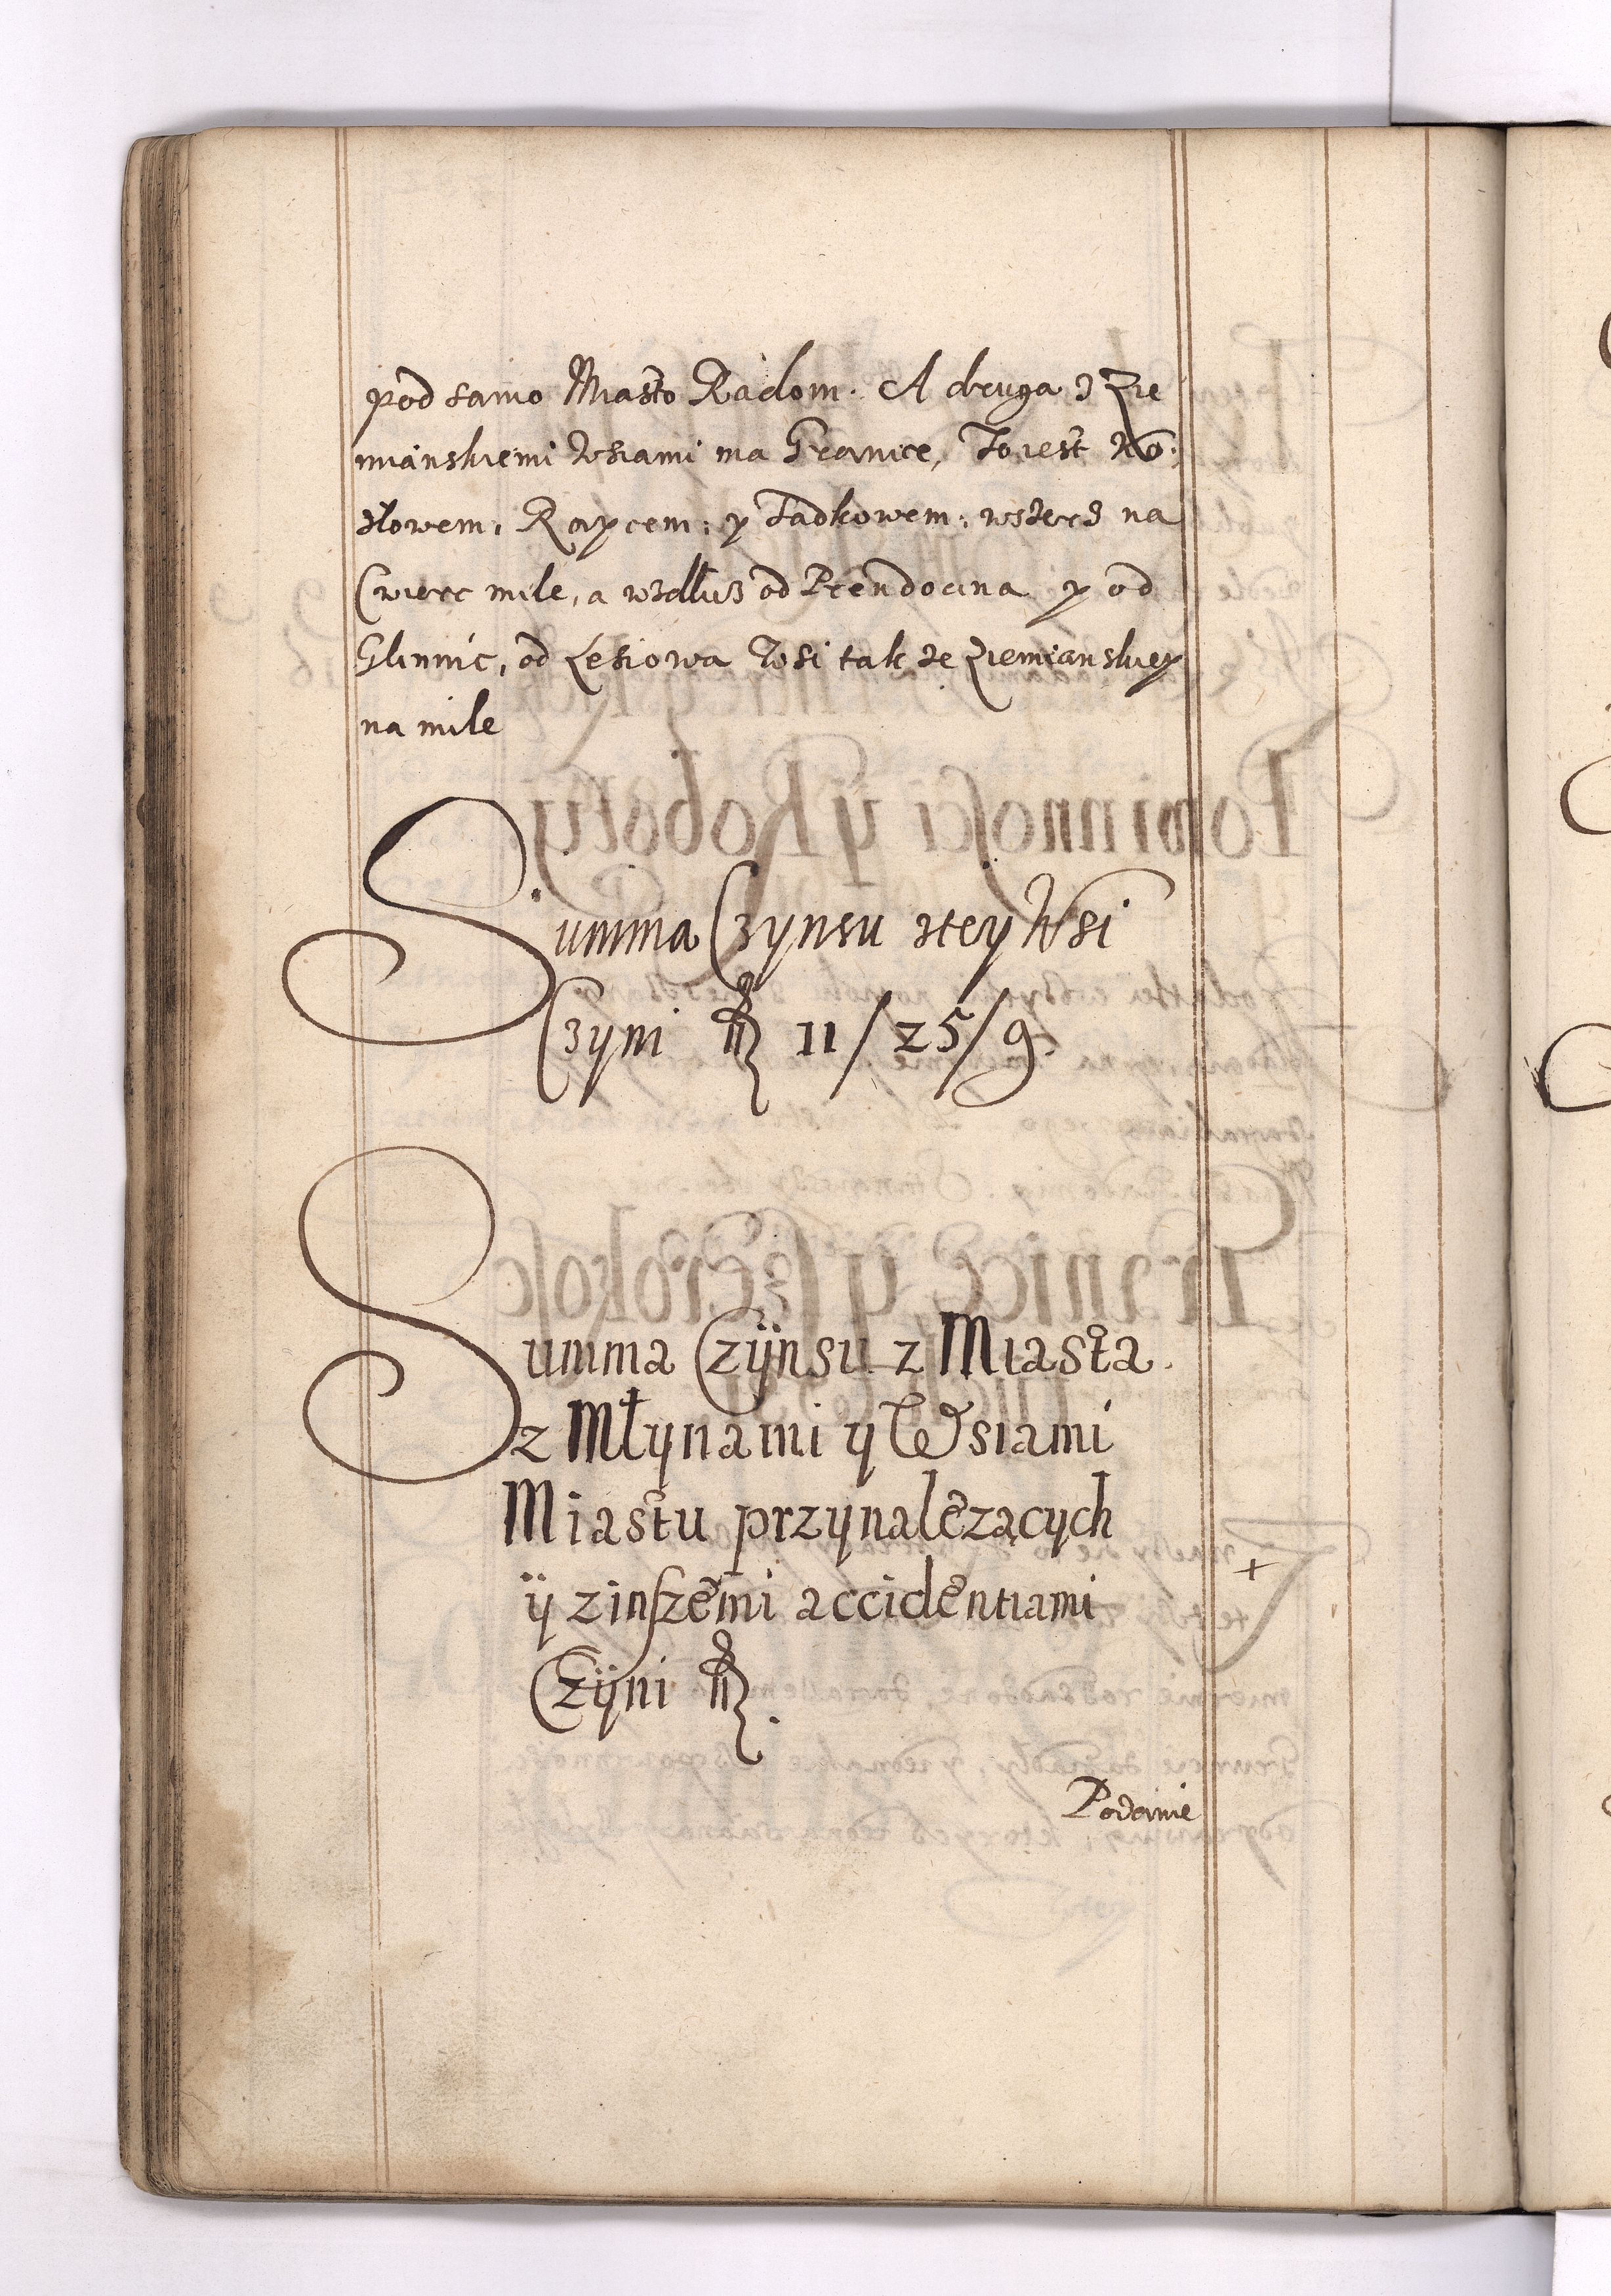 pod samo Miasto Radom. A druga z Zie
miánskiemi Wsiami ma Granice, To iest Ko:
złowem, Raÿcem: ÿ Tadkowem: wszerz na
Cwierc mile, a wzdłuż od Prendocina ÿ od
Glinnic, od Lesiowa Wsi tak ze Ziemianskieÿ
na mile
Summa Czynsu zteÿ Wsi
Czyni fl 11/25/9.
Summa Czÿnsu z Miasta.
z Młÿnami ÿ Wsiami
Miastu przÿnalezącÿch
ÿ z inszemi accidentiami
Czÿni fl.
Podanie